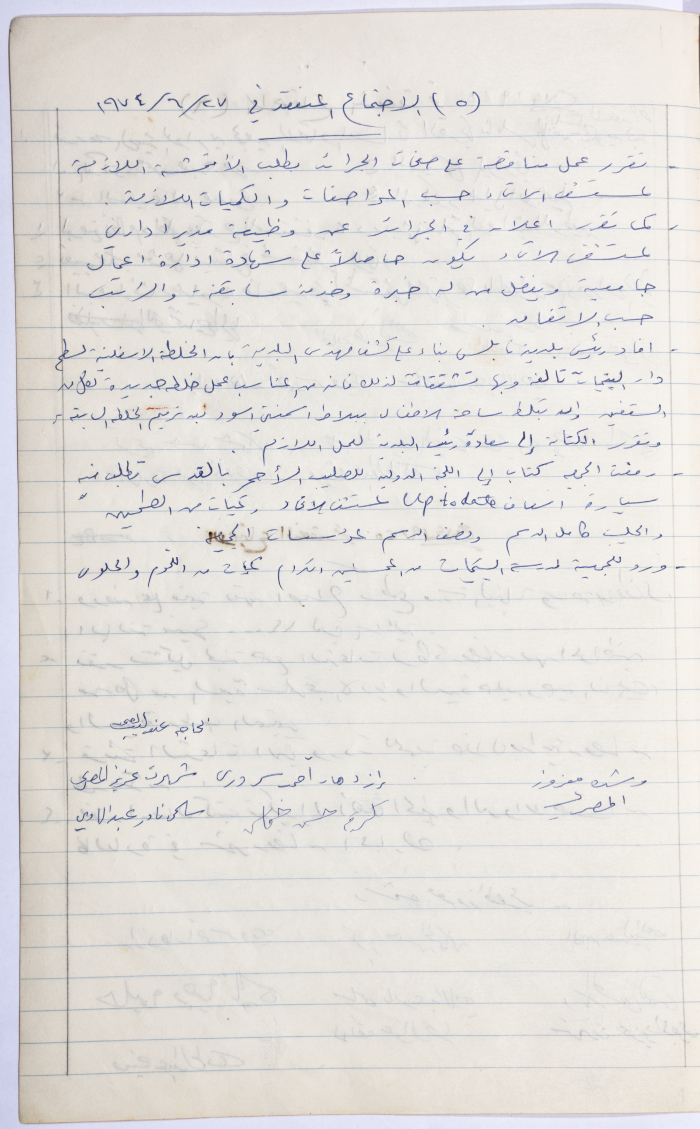 (٥) الاجتماع المنعقد في ٢٧/٦/١٩٧٤
- تقرر عمل مناقصة على صفحات الجرائد بطلب الأقمشة اللازمة
لمستشفى الاتحاد حسب المواصفات والكميات اللازمة .
- كما تقرر اعلان في الجرائد عن وظيفة مدير اداري
لمستشفى الاتحاد يكون حاصلاً على شهادة ادارة اعمال
جامعية ويفضل من له خبرة وخدمة سابقة والراتب
حسب الاتفاق .
- افاد رئيس بلدية نابلس بناء على كشف مهندس البلدية بان الخلطة الاسفلتية لسطح
دار اليتيمات تالفة وبها تشققات لذلك فانه من المناسب عمل خلطة جديدة لكل من
السقفين وان تبلط ساحة الاطفال ببلاط اسمنتي اسود بعد ترميم الخلطة السابقة
وتقرر الكتابة إلى سعادة رئيس البلدية لعمل اللازم .
- رفعت الجمعية كتاب إلى اللجنة الدولية للصليب الأحمر بالقدس تطلب فيه
سيارة اسعاف Up to date لمستشفى الاتحاد وكميات من الطحين
والحليب كامل الدسم ونصف الدسم لمؤسسات الجمعية
- ورد للجمعية لمدرسة اليتيمات من المحسنين الكرام كميات من اللحوم والحلوى
الحاجه عندليب العمد
وشده معزوز المصري
ازدهار أحمد سروري
شهرت عزيز المصري
كريم حسن
سلمى نادر عبد الهادي